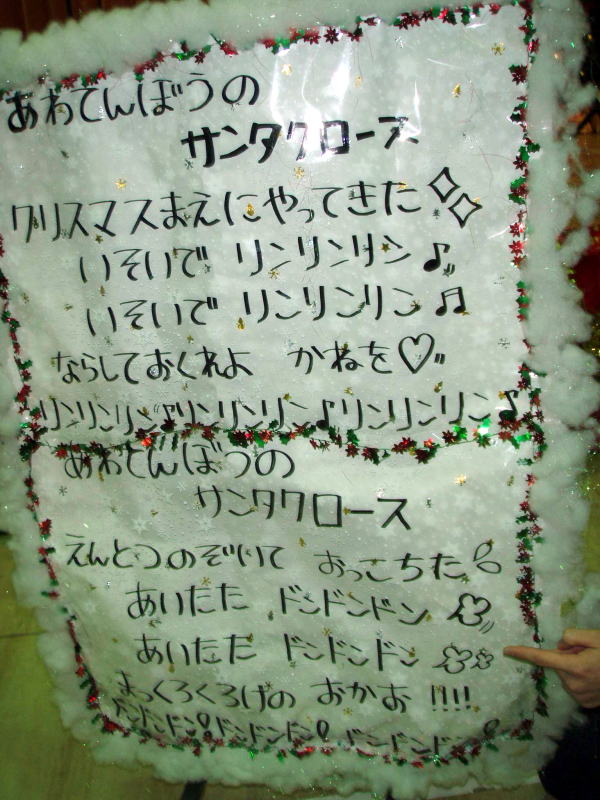 あわてんぼうの
サンタクロース
クリスマスまえにやってきた
いそいで リンリンリン♪
いそいで リンリンリン♫
ならしておくれよ かねを♡
リンリンリン♪リンリンリン♪リンリンリン♪
あわてんぼうの
サンタクロース
えんとつのぞいて おっこちた
あいたた ドンドンドン
あいたた ドンドンドン
まっくろくろけの おかお!!!!
ドンドンドン ドンドンドン ドンドンドン